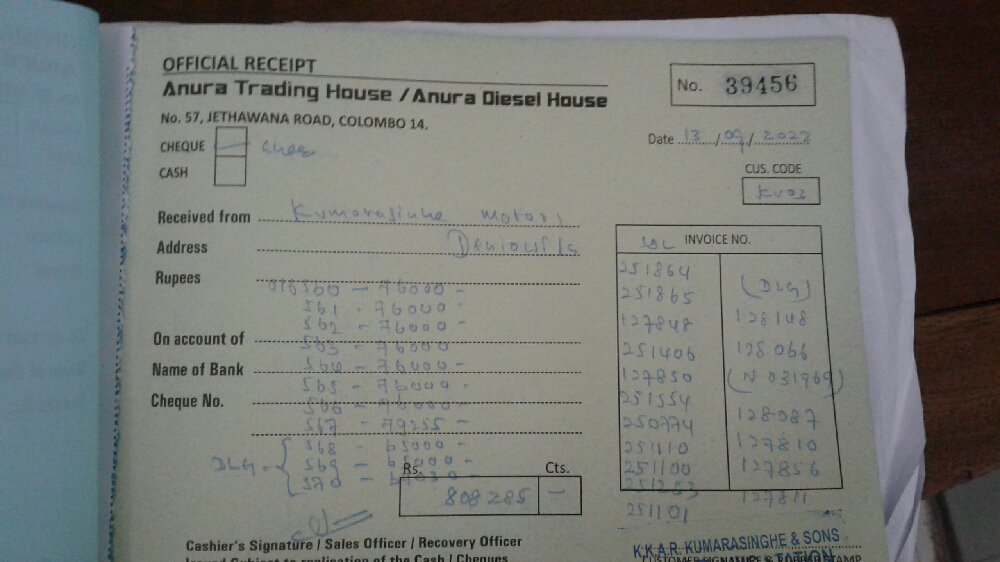 OFFICIAL RECEIPT
Anura Trading House / Anura Diesel House
No. 39456
No. 57, JETHAWANA ROAD, COLOMBO 14.
Date 13 / 09 / 2022
CHEQUE
CASH
CUS. CODE
KU03
Received from Kumarasinhe Motors
Address
Rupees
On account of
Name of Bank
Cheque No.
560 - 76000 -
561 - 76000 -
562 - 76000 -
563 - 76000
564 - 76000 -
565 - 76000 -
566 - 76000 -
567 - 79255 -
DLG
568 - 65000 -
569 - 65000 -
570
Rs. Cts.
808285 -
INVOICE NO.
251864
251865
127848
251406
127850
251554
250774
251110
251100
251253
251101
(DLG)
128148
128066
(N 031969)
128087
127810
127856
127811
Cashier's Signature / Sales Officer / Recovery Officer
Issued Subject to realisation of the Cash / Cheques
K.K.A.R. KUMARASINGHE & SONS
CUSTOMER SIGNATURE & RUBBER STAMP